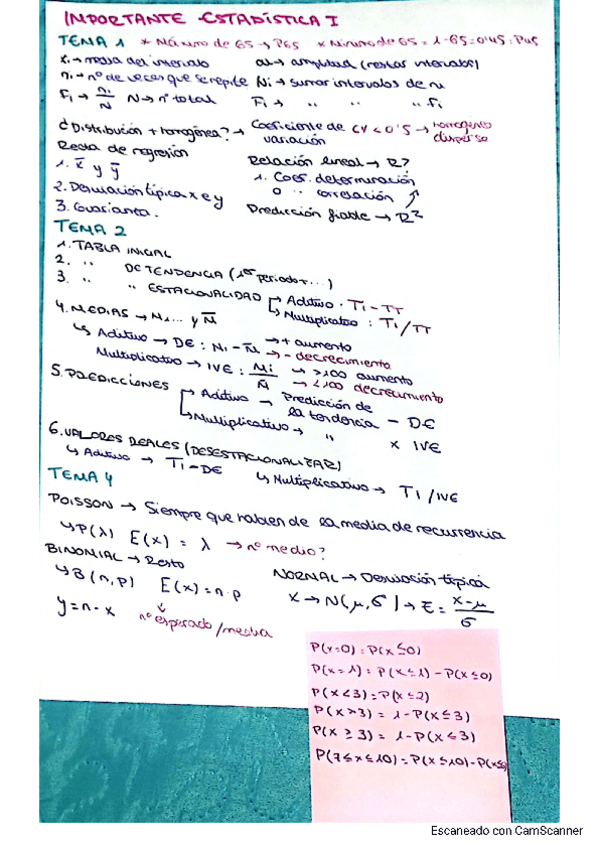 IMPORTANTE ESTADÍSTICA I
TEMA 1 * Máximo de 65 → P65 * Mínimo de 65 = 1-65 = 0'45 : P45
xi → media del intervalo ai → amplitud (restar intervalos)
ni → nº de veces que se repite Ni → sumar intervalos de n
Fi → ni/N N → nº total Fi → " " " fi
¿Distribución + homogénea? → Coeficiente de variación CV < 0'5 → homogéneo disperso
Recta de regresión Relación lineal → R?
1. x̄ y ȳ 1. Coef. determinación
2. Desviación típica x e y O " correlación
3. Covarianza. Predicción fiable → R²
TEMA 2
1. TABLA INICIAL
2. " DE TENDENCIA (1er periodo + ...)
3. " " ESTACIONALIDAD → Aditivo · Ti - TT
→ Multiplicativo : Ti/TT
4. MEDIAS → M1... y M̄
↳ Aditivo → DE : Mi - M̄ → + aumento
→ - decrecimiento
Multiplicativo → IVE : Mi/M̄ → >100 aumento
→ <100 decrecimiento
5. PREDICCIONES
→ Aditivo → Predicción de la tendencia - DE
↳ Multiplicativo → " x IVE
6. VALORES REALES (DESESTACIONALIZAR)
↳ Aditivo → Ti - DE ↳ Multiplicativo → Ti/IVE
TEMA 4
POISSON → Siempre que hablen de la media de recurrencia
↳ P(λ) E(x) = λ → nº medio?
BINOMIAL → Resto NORMAL → Desviación típica
↳ B(n,p) E(x) = n·p X → N(μ,σ) → Z = x-μ/σ
y = n - x nº esperado/media
P(x=0) = P(x≤0)
P(x=1) = P(x≤1) - P(x≤0)
P(x<3) = P(x≤2)
P(x>3) = 1 - P(x≤3)
P(x≥3) = 1 - P(x≤3)
P(7≤x≤10) = P(x≤10) - P(x≤
Escaneado con CamScanner